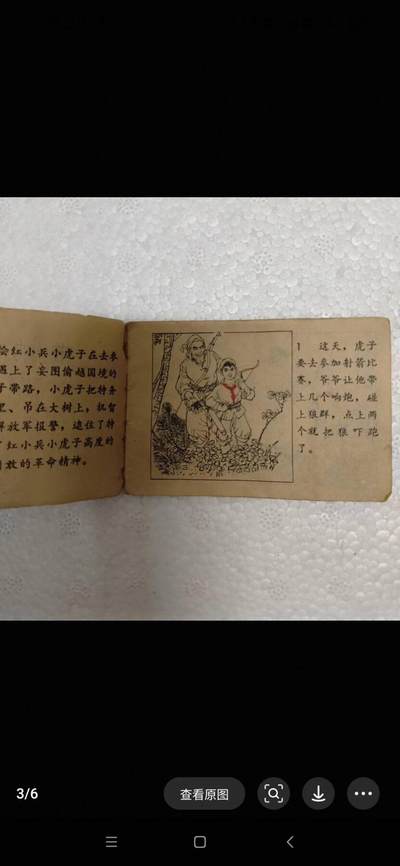 绘红小兵小虎子在去参
遇上了妄图偷越国境的
子带路，小虎子把特务
里、吊在大树上，机智
解放军报警，逮住了特
了红小兵小虎子高度的
勇敢的革命精神。
1 这天，虎子
要去参加射箭比
赛，爷爷让他带
上几个响炮，碰
上狼群，点上两
个就把狼吓跑
了。
3/6
查看原图